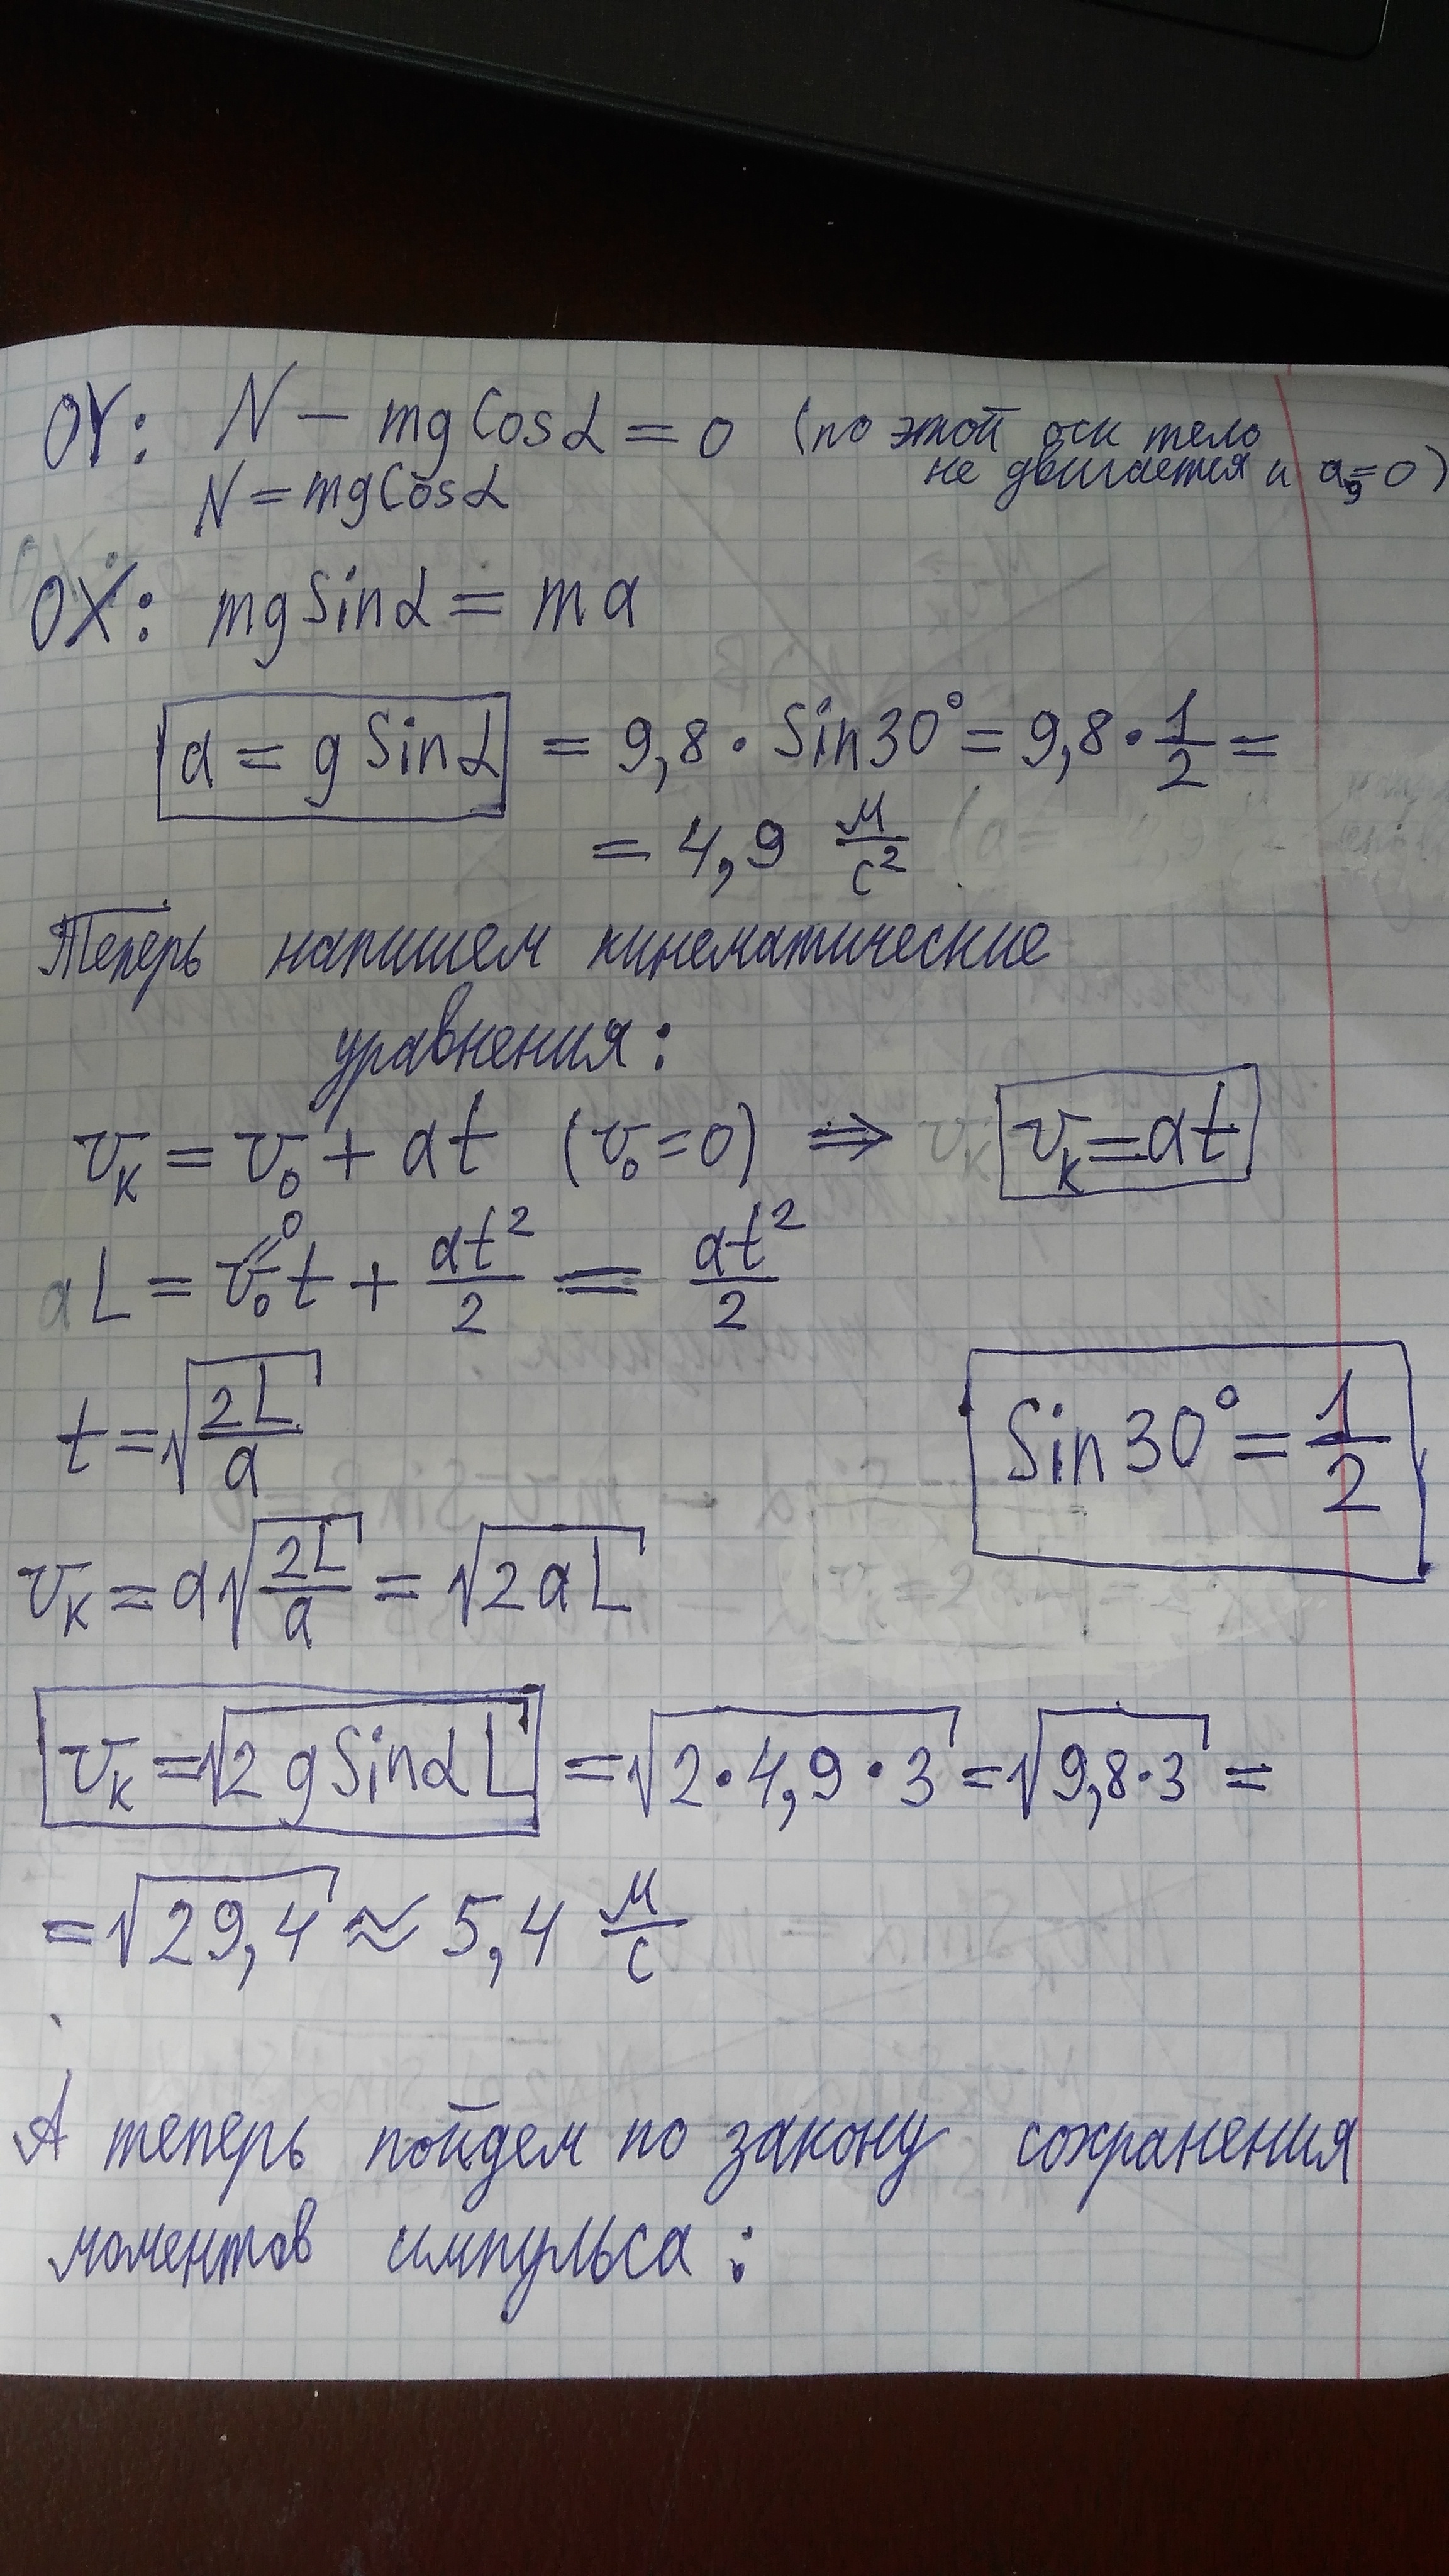 OY: N − mg Cos α = 0 (по этой оси тело
не двигается и a_y = 0)
N = mg Cos α
OX: mg Sin α = ma
a = g Sin α = 9,8 · Sin 30° = 9,8 · 1/2 =
= 4,9 м/с²
Теперь напишем кинематические
уравнения:
v_к = v_0 + at (v_0 = 0) ⇒ v_к = at
L = v_0 t + at²/2 = at²/2
t = √(2L/a)
Sin 30° = 1/2
v_к = a√(2L/a) = √(2aL)
v_к = √(2 g Sin α L) = √(2 · 4,9 · 3) = √(9,8 · 3) =
= √29,4 ≈ 5,4 м/с
А теперь пойдем по закону сохранения
моментов импульса: